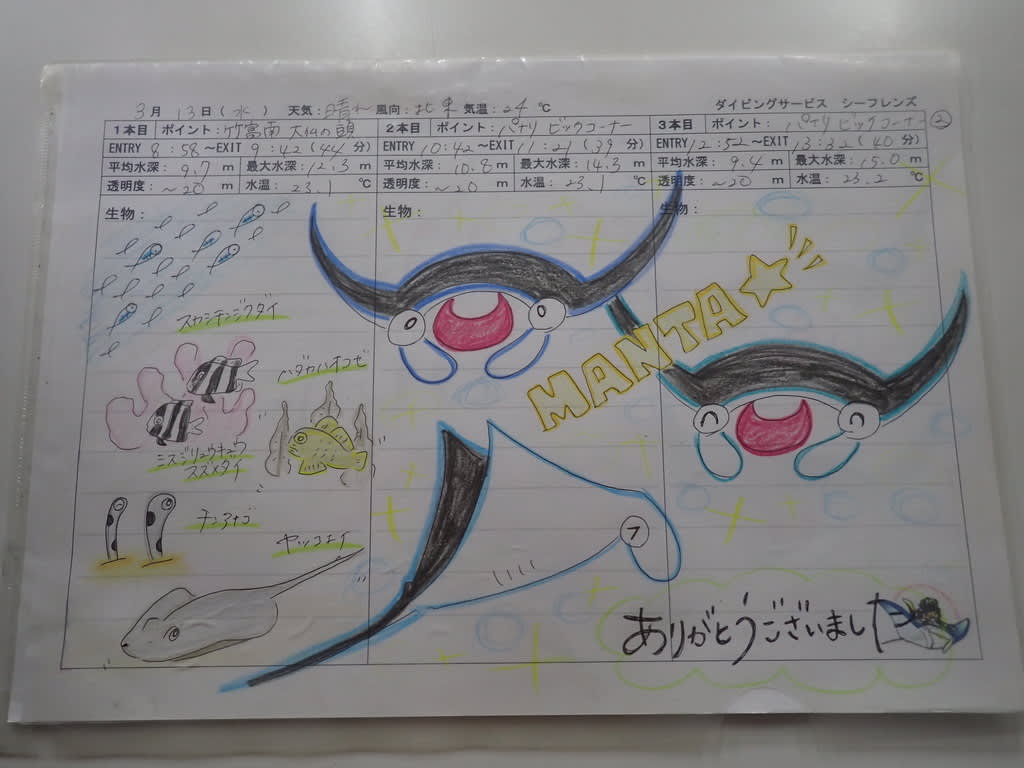 3月 13日(水) 天気:晴れ 風向:北東 気温:24 ℃ ダイビングサービス シーフレンズ
1本目 ポイント:竹富南 大仏の頭
ENTRY 8:58~EXIT 9:42(44分)
平均水深: 9.7 m 最大水深:12.3 m
透明度:~20 m 水温: 23.1 ℃
生物:
スカシテンジクダイ
ハダカハオコゼ
ミスジリュウキュウ
スズメダイ
チンアナゴ
ヤッコエイ
2本目 ポイント:パナリ ビックコーナー
ENTRY 10:42~EXIT 11:21(39分)
平均水深: 10.8 m 最大水深:14.3 m
透明度:~20 m 水温:23.1 ℃
生物:
3本目 ポイント: パナリ ビックコーナー②
ENTRY 12:52~EXIT 13:32(40分)
平均水深: 9.4 m 最大水深: 15.0 m
透明度:~20 m 水温: 23.2 ℃
生物:
MANTA☆
ありがとうございました